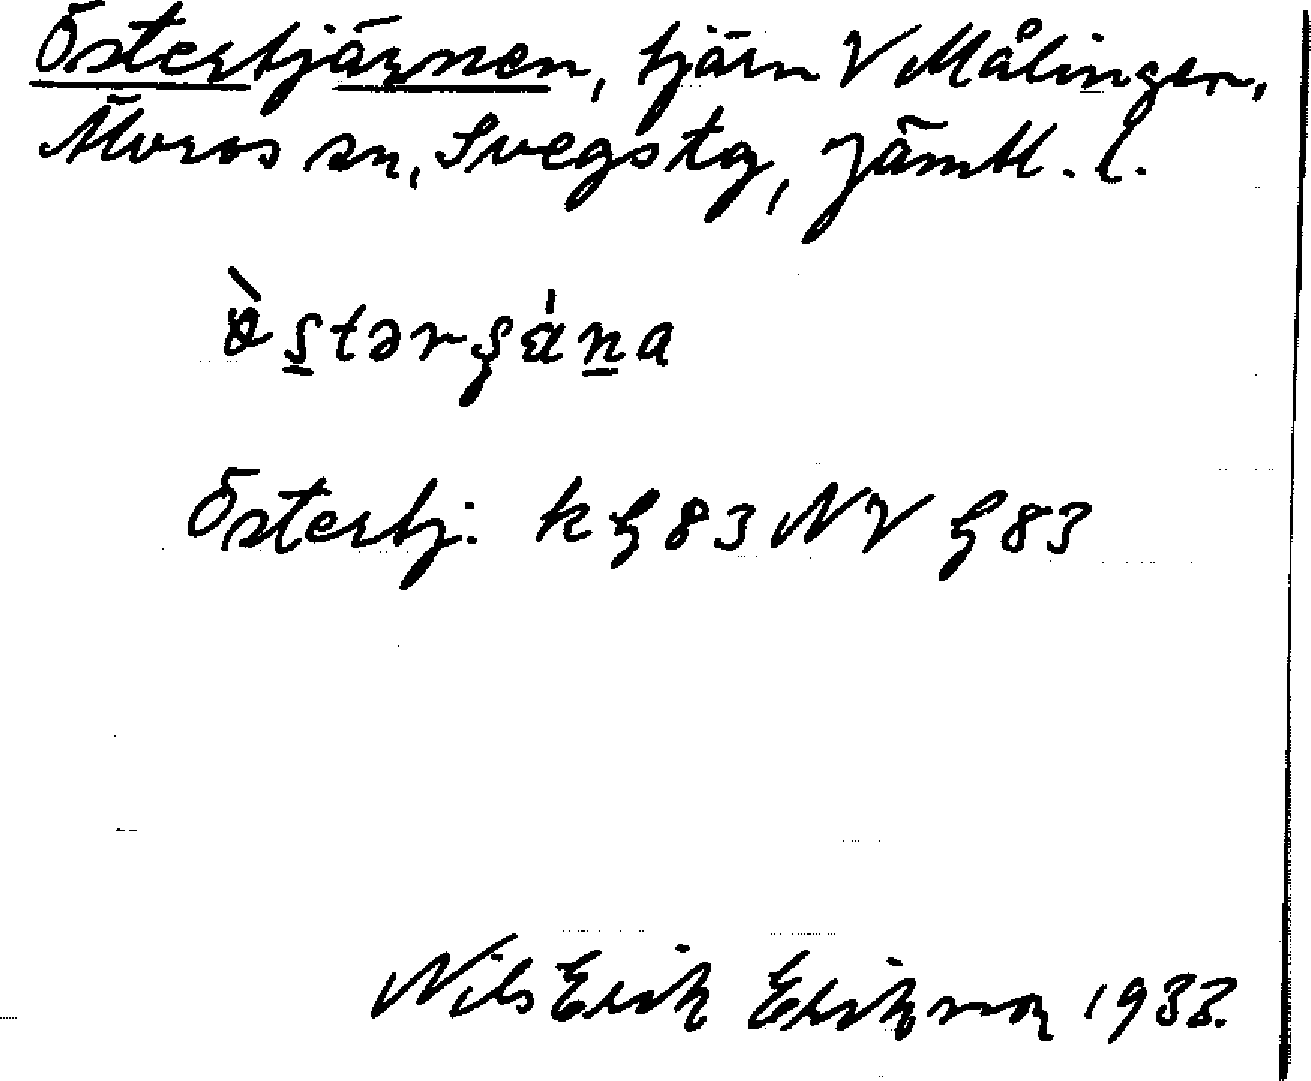 Östertjärnen, tjärn V Målingen,
Älvros sn, Svegs tg, Jämtl. l.
ö̀stərʂána
Östertj. k G 83 NV G 83
Nils Erik Eriksson 1933.